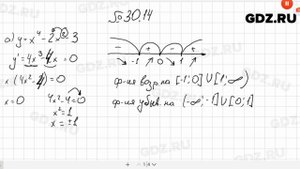 GDZ.RU
№ 30.14
а) y = x⁴ - 2x² - 3
y' = 4x³ - 4x = 0
x(4x² - 4) = 0
x = 0 4x² - 4 = 0
x² = 1
x = ±1
- + - +
-1 0 1
ф-ия возр на [-1; 0] U [1; ∞)
ф-ия убыв. на (-∞; -1] U [0; 1]
GDZ.RU